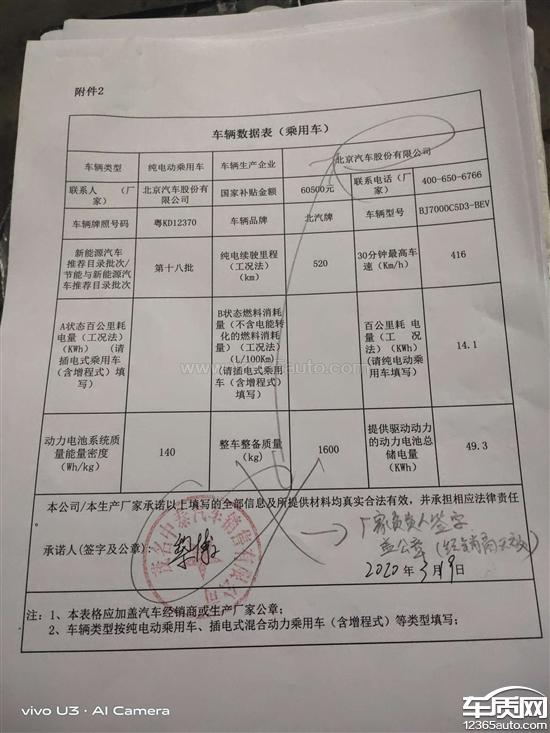 附件2
车辆数据表（乘用车）
车辆类型 纯电动乘用车 车辆生产企业 北京汽车股份有限公司
联系人 （厂家） 北京汽车股份有限公司 国家补贴金额 60500元 联系电话（厂家） 400-650-6766
车辆牌照号码 粤KD12370 车辆品牌 北汽牌 车辆型号 BJ7000C5D3-BEV
新能源汽车
推荐目录批次/
节能与新能源汽车
推荐目录批次
第十八批
纯电续驶里程
（工况法）
(km)
520
30分钟最高车
速（Km/h）
416
A状态百公里耗
电量（工况法）
（KWh） （请
插电式乘用车
（含增程式）填
写）
B状态燃料消耗
量（不含电能转
化的燃料消耗
量）（工况法）
(L/100Km)
(请插电式乘用
车（含增程式）
填写）
百公里耗 电
量（工 况
法）（KWh）
（请纯电动乘
用车填写）
14.1
动力电池系统质
量能量密度
（Wh/kg）
140
整车整备质量
(kg)
1600
提供驱动动力
的动力电池总
储电量
（KWh）
49.3
本公司/本生产厂家承诺以上填写的全部信息及所提供材料均真实合法有效，并承担相应法律责任
承诺人(签字及公章):
厂家负责人签字
盖公章（经销商无效）
2020年3月9日
注：1、本表格应加盖汽车经销商或生产厂家公章；
2、车辆类型按纯电动乘用车、插电式混合动力乘用车（含增程式）等类型填写；
vivo U3 · AI Camera
车质网
12365auto.com